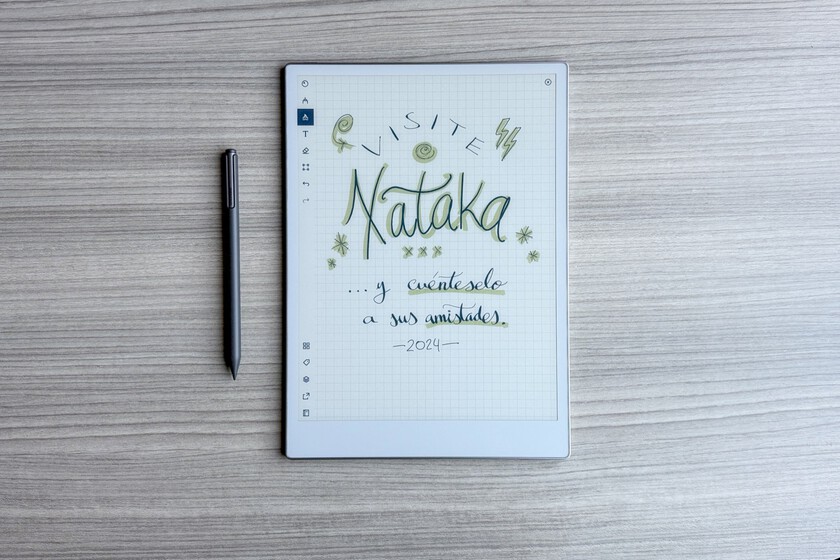 VISITE
Xataka
xxx
... y cuénteselo
a sus amistades.
—2024—
T